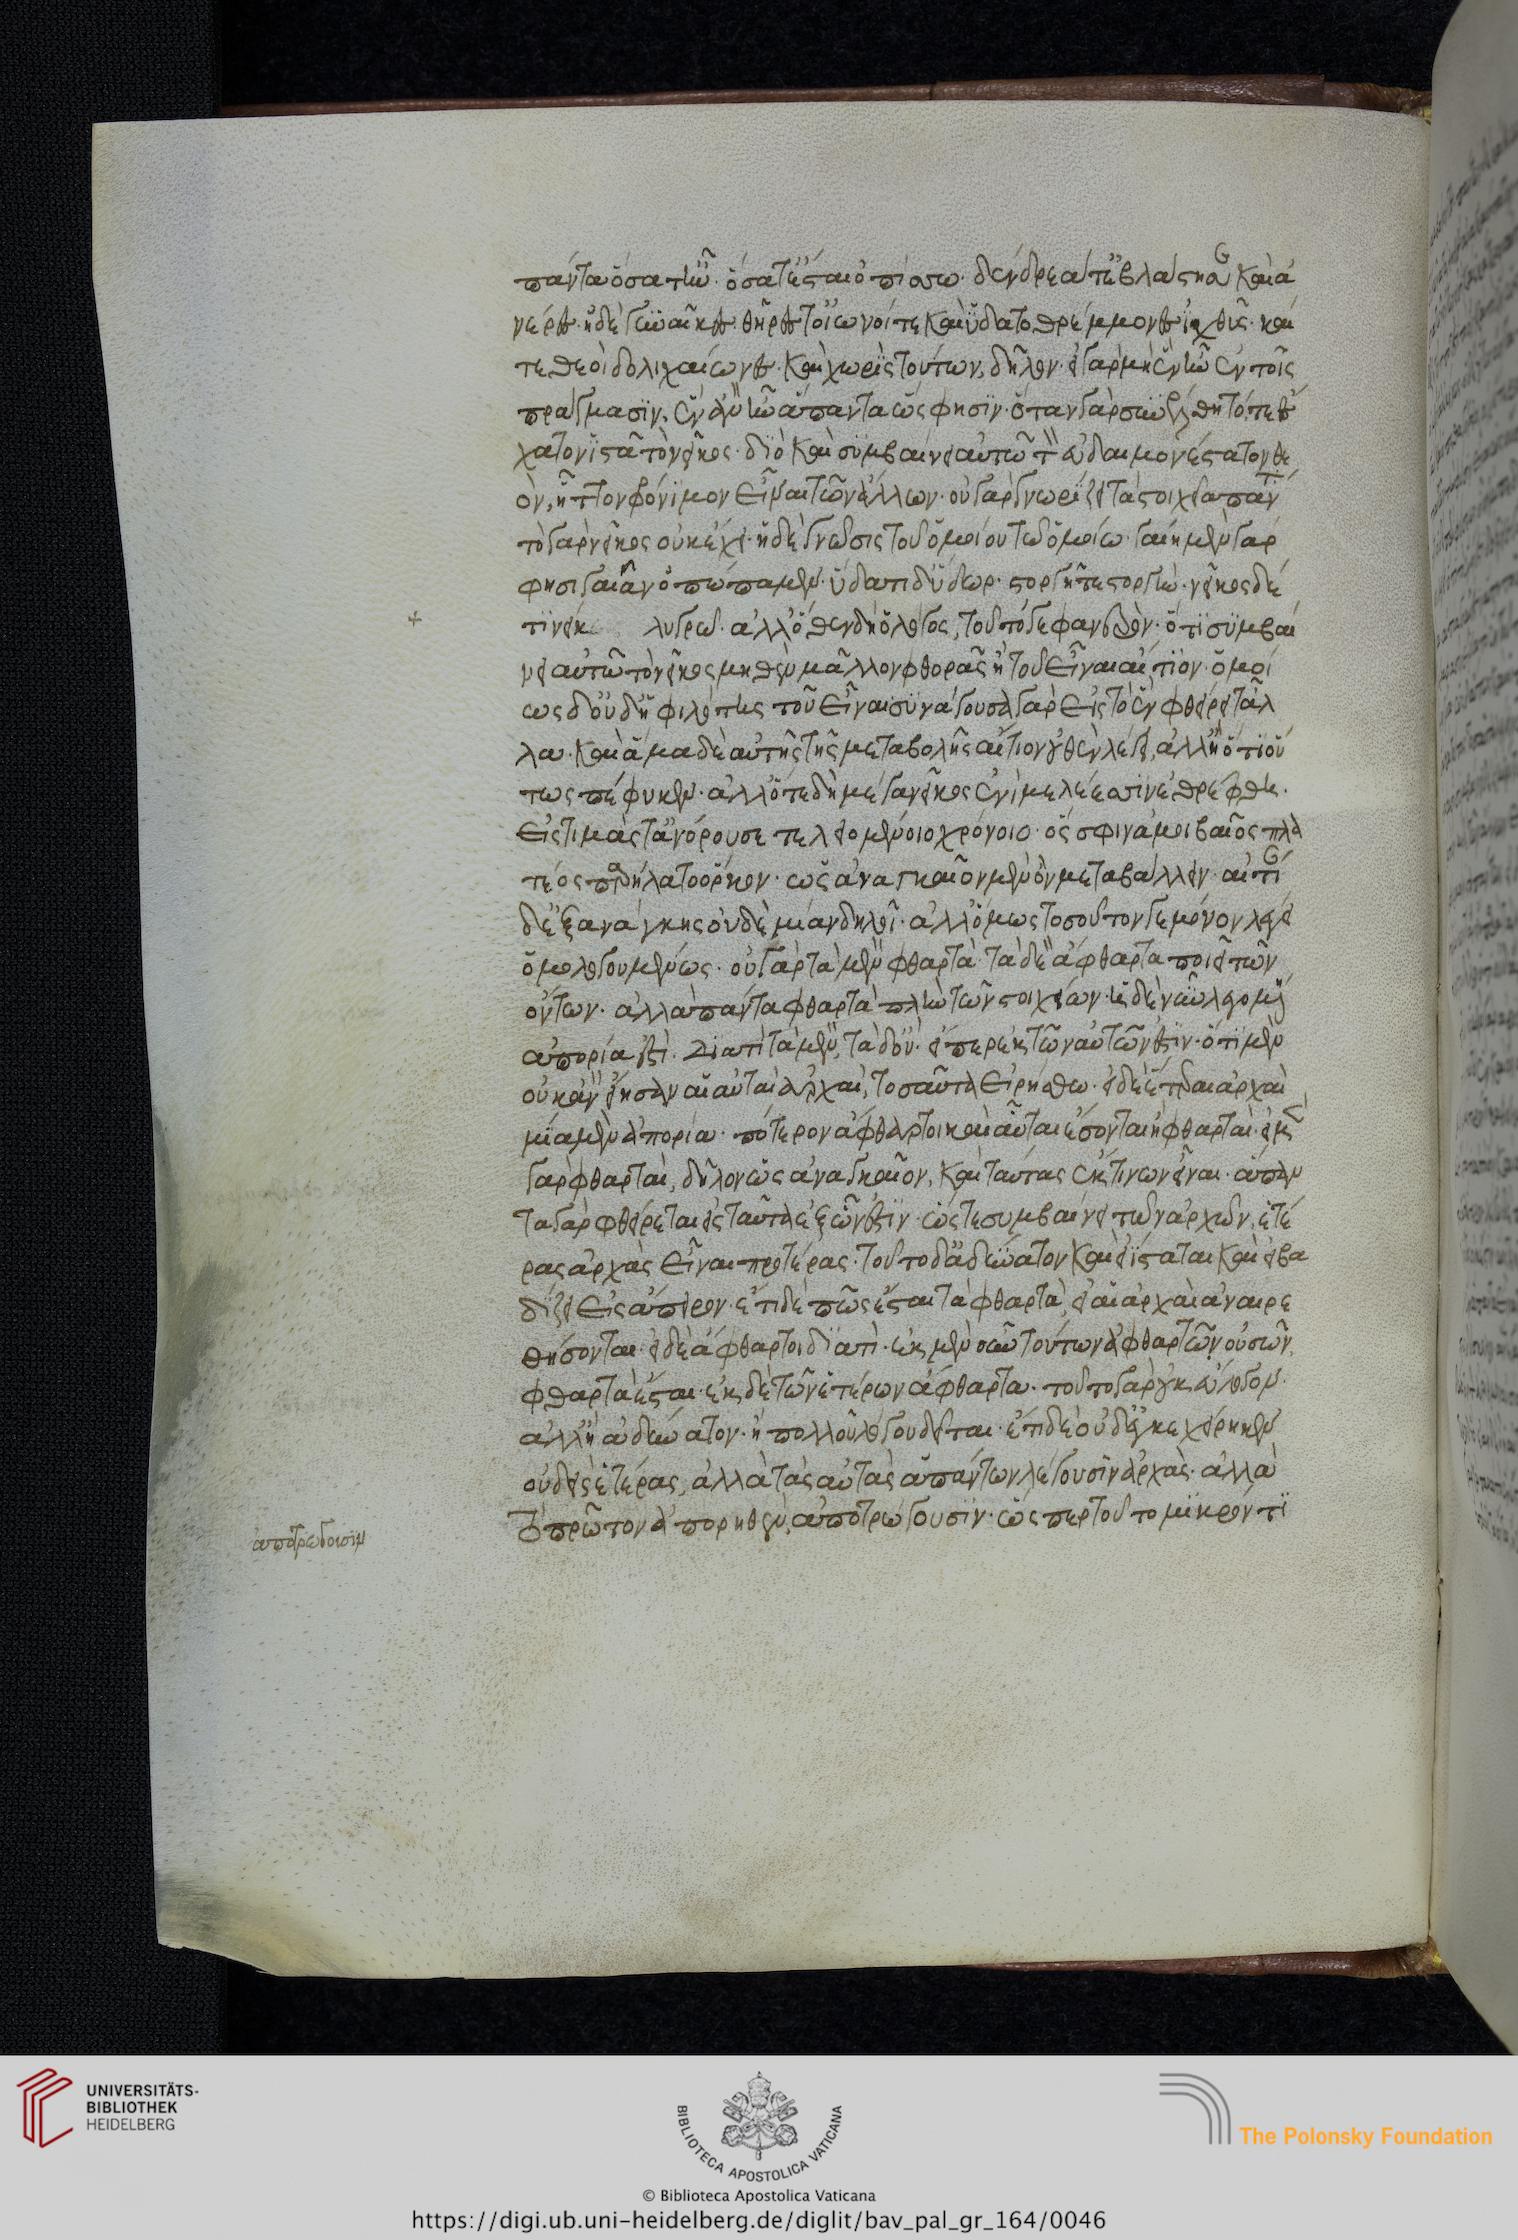 πάντα ὅσα τ' ἦν· ὅσα τ' ἔσται ὀπίσσω· δένδρεά τ' ἐβλάστησε καὶ ἀ
νέρες· ἠδὲ γυναῖκες· θῆρές τ' οἰωνοί τε καὶ ὑδατοθρέμμονες ἰχθῦς· καί
τε θεοὶ δολιχαίωνες· καὶ χωρὶς τούτων, δῆλον· εἰ γὰρ μὴ ἐνῆν ἐν τοῖς
πράγμασιν, ἓν ἂν ἦν ἅπαντα ὥς φησιν· ὅταν γὰρ συνέλθῃ τότε δ' ἔ
χατον ἵστατο νεῖκος· διὸ καὶ συμβαίνει αὐτῶ τ εὐδαιμονέστατον θε
ὸν, ἧττον φρόνιμον εἶναι τῶν ἄλλων· οὐ γὰρ γνωρίζει τὰ στοιχεῖα πάντ
τὸ γὰρ νεῖκος οὐκ ἔχει· ἡ δὲ γνῶσις τοῦ ὁμοίου τῶ ὁμοίω· γαίη μὲν γάρ
φησι γαῖαν ὀπώπαμεν· ὕδατι δ' ὕδωρ· στοργῆ τε στοργήν· νεῖκος δέ
τι νείκ λυγρῶ· ἀλλ' ὅθεν δὴ ὁ λόγος, τοῦτό γε φανερὸν· ὅτι συμβαί
νει αὐτῶ τὸ νεῖκος μηθὲν μᾶλλον φθορᾶς ἢ τοῦ εἶναι αἴτιον· ὁμοί
ως δ' οὐδ' ἡ φιλότης τοῦ εἶναι συνάγουσα γὰρ εἰς τὸ ἓν φθείρει τἆλ
λα· καὶ ἅμα δὲ αὐτῆς τῆς μεταβολῆς αἴτιον οὐθὲν λέγει, ἀλλ' ἢ ὅτι οὕ
τως πέφυκεν· ἀλλ' ὅτε δὴ μέγα νεῖκος ἐνὶ μελέεσσιν ἐθρέφθη·
εἰς τιμάς τ' ἀνόρουσε τελειομένοιο χρόνοιο· ὅς σφιν ἀμοιβαῖος πλα
τέος παρήλατο ὅρκου· ὡς ἀναγκαῖον μὲν ὂν μεταβάλλειν· αἰτί
δ' ἐξ ἀνάγκης οὐδὲ μίαν δηλοῖ· ἀλλ' ὅμως τοσοῦτόν γε μόνον λέγει
ὁμολογουμένως· οὐ γὰρ τὰ μὲν φθαρτὰ· τὰ δὲ ἄφθαρτα ποιεῖ τῶν
ὄντων· ἀλλὰ πάντα φθαρτὰ πλὴν τῶν στοιχείων· ἡ δὲ νῦν λεγομένη
ἀπορία ἐστὶ· διατί τὰ μὲν, τὰ δ' οὔ· εἴπερ ἐκ τῶν αὐτῶν ἐστιν· ὅτι μὲν
οὐκ ἂν εἴησαν αἱ αὐταὶ ἀρχαί, τοσαῦτα εἰρήσθω· εἰ δὲ ἕτεραι ἀρχαὶ
μία μὲν ἀπορία· πότερον ἄφθαρτοι καὶ αὗται ἔσονται ἢ φθαρταί· εἰ μὲν
γὰρ φθαρταί, δῆλον ὡς ἀναγκαῖον, καὶ ταύτας ἔκ τινων εἶναι· ἅπαν
τα γὰρ φθείρεται εἰς ταῦτα ἐξ ὧν ἐστιν· ὥστε συμβαίνει τῶν ἀρχῶν, ἑτέ
ρας ἀρχὰς εἶναι προτέρας· τοῦτο δ' ἀδύνατον καὶ εἰ ἵσταται καὶ εἰ βα
δίζει εἰς ἄπειρον· ἔτι δὲ πῶς ἔσται τὰ φθαρτὰ, εἰ αἱ ἀρχαὶ ἀναιρε
θήσονται· εἰ δὲ ἄφθαρτοι διατί· ἐκ μὲν τούτων ἀφθάρτων οὐσῶν,
φθαρτὰ ἔσται· ἐκ δὲ τῶν ἑτέρων ἄφθαρτα· τοῦτο γὰρ οὐκ εὔλογον·
ἀλλ' ἢ ἀδύνατον· ἢ πολλοῦ λόγου δεῖται· ἔτι δὲ οὐδ' ἐγκεχείρηκεν
οὐδεὶς ἑτέρας, ἀλλὰ τὰς αὐτὰς ἁπάντων λέγουσιν ἀρχὰς· ἀλλὰ
τὸ πρῶτον ἀπορηθὲν, ἀποτρώγουσιν· ὥσπερ τοῦτο μικρόν τι
ἀποτρέδουσιν
UNIVERSITÄTS-
BIBLIOTHEK
HEIDELBERG
BIBLIOTECA APOSTOLICA VATICANA
© Biblioteca Apostolica Vaticana
The Polonsky Foundation
https://digi.ub.uni-heidelberg.de/diglit/bav_pal_gr_164/0046